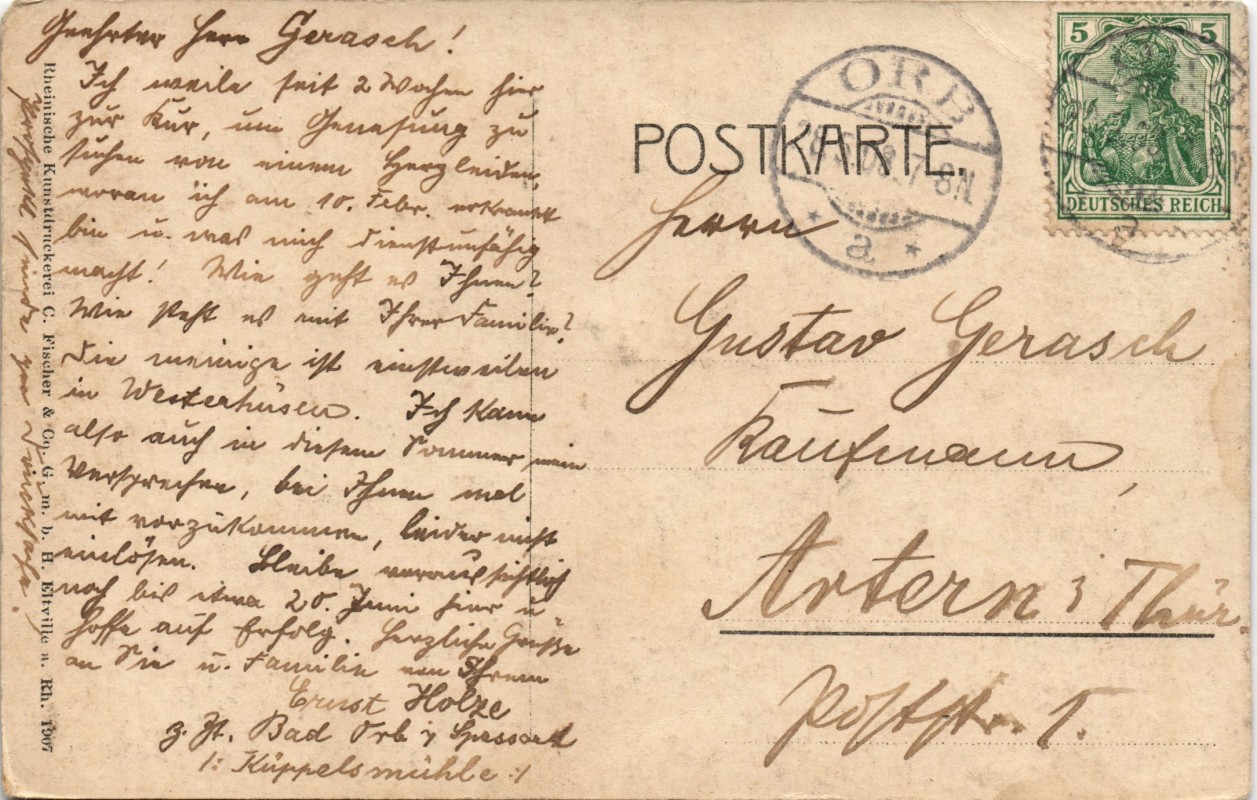 Geehrter Herr Gerasch!
Ich weile seit 2 Wochen hier
zur Kur, um Genesung zu
suchen von einem Herzleiden,
woran ich am 10. Febr. erkrankt
bin u. was mich dienstunfähig
macht! Wie geht es Ihnen?
Wie steht es mit Ihrer Familie?
Die meinige ist einstweilen
in Westerhüsen. Ich kann
also auch in diesem Sommer mein
Versprechen, bei Ihnen mal
mit vorzukommen, leider nicht
einlösen. Bleibe voraussichtlich
noch bis etwa 20. Juni hier u
hoffe auf Erfolg. Herzliche Grüße
an Sie u. Familie von Ihrem
Ernst Holze
z. Zt. Bad Orb i/ Spessart
/: Küppelsmühle :/
Rheinische Kunstdruckerei C. Fischer & Co. G. m. b. H. Eltville a. Rh. 1907
POSTKARTE.
ORB
7-8N
a
5 5
DEUTSCHES REICH
Herrn
Gustav Gerasch
Kaufmann,
Artern i Thür.
Poststr. 1.